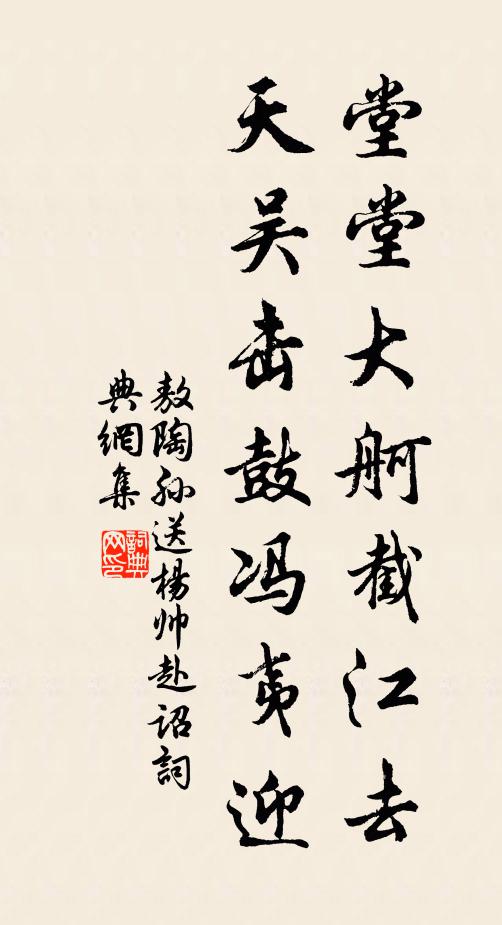 堂堂大舸截江去
天吴击鼓冯夷迎
敖陶孙送楊帅赴诏詞
典網集
詞典网印